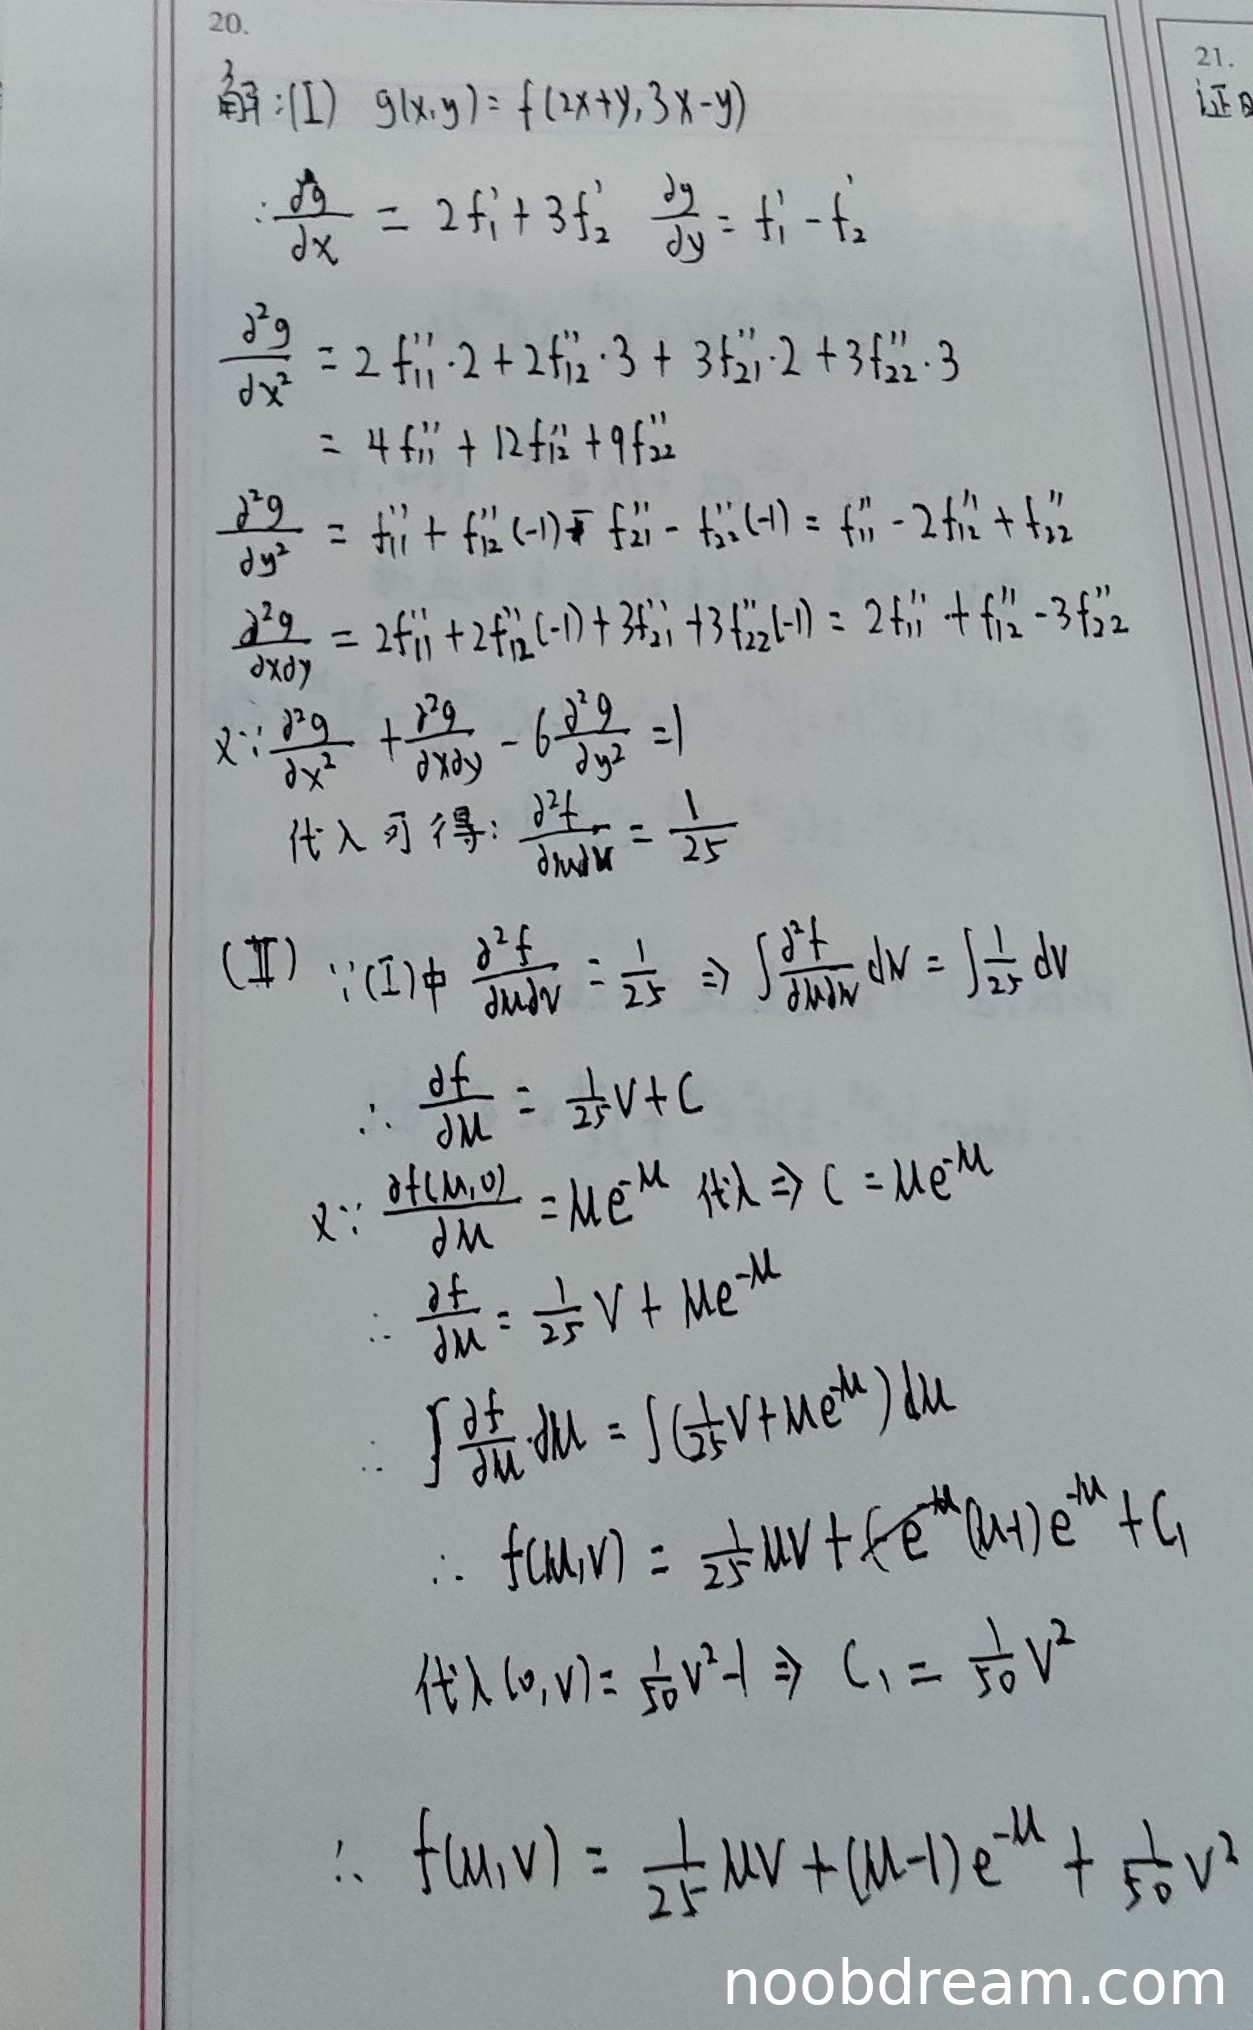 20.
解:(I) g(x,y)=f(2x+y,3x-y)
∴ ∂g/∂x = 2f₁'+3f₂' ∂g/∂y = f₁'-f₂'
∂²g/∂x² = 2f₁₁''·2+2f₁₂''·3+3f₂₁''·2+3f₂₂''·3
= 4f₁₁''+12f₁₂''+9f₂₂''
∂²g/∂y² = f₁₁''+f₁₂''(-1)-f₂₁''-f₂₂''(-1) = f₁₁''-2f₁₂''+f₂₂''
∂²g/∂x∂y = 2f₁₁''+2f₁₂''(-1)+3f₂₁''+3f₂₂''(-1) = 2f₁₁''+f₁₂''-3f₂₂''
又∵ ∂²g/∂x² + ∂²g/∂x∂y - 6∂²g/∂y² = 1
代入可得: ∂²f/∂u∂v = 1/25
(Ⅱ) ∵(I)中 ∂²f/∂u∂v = 1/25 ⇒ ∫∂²f/∂u∂v dv = ∫1/25 dv
∴ ∂f/∂u = 1/25 v + C
又∵ ∂f(u,0)/∂u = ue^-u 代入 ⇒ C = ue^-u
∴ ∂f/∂u = 1/25 v + ue^-u
∴ ∫∂f/∂u·du = ∫(1/25 v+ue^-u)du
∴ f(u,v) = 1/25 uv + (u-1)e^-u + C₁
代入(0,v) = 1/50 v²-1 ⇒ C₁ = 1/50 v²
∴ f(u,v) = 1/25 uv + (u-1)e^-u + 1/50 v²
21.
证
noobdream.com